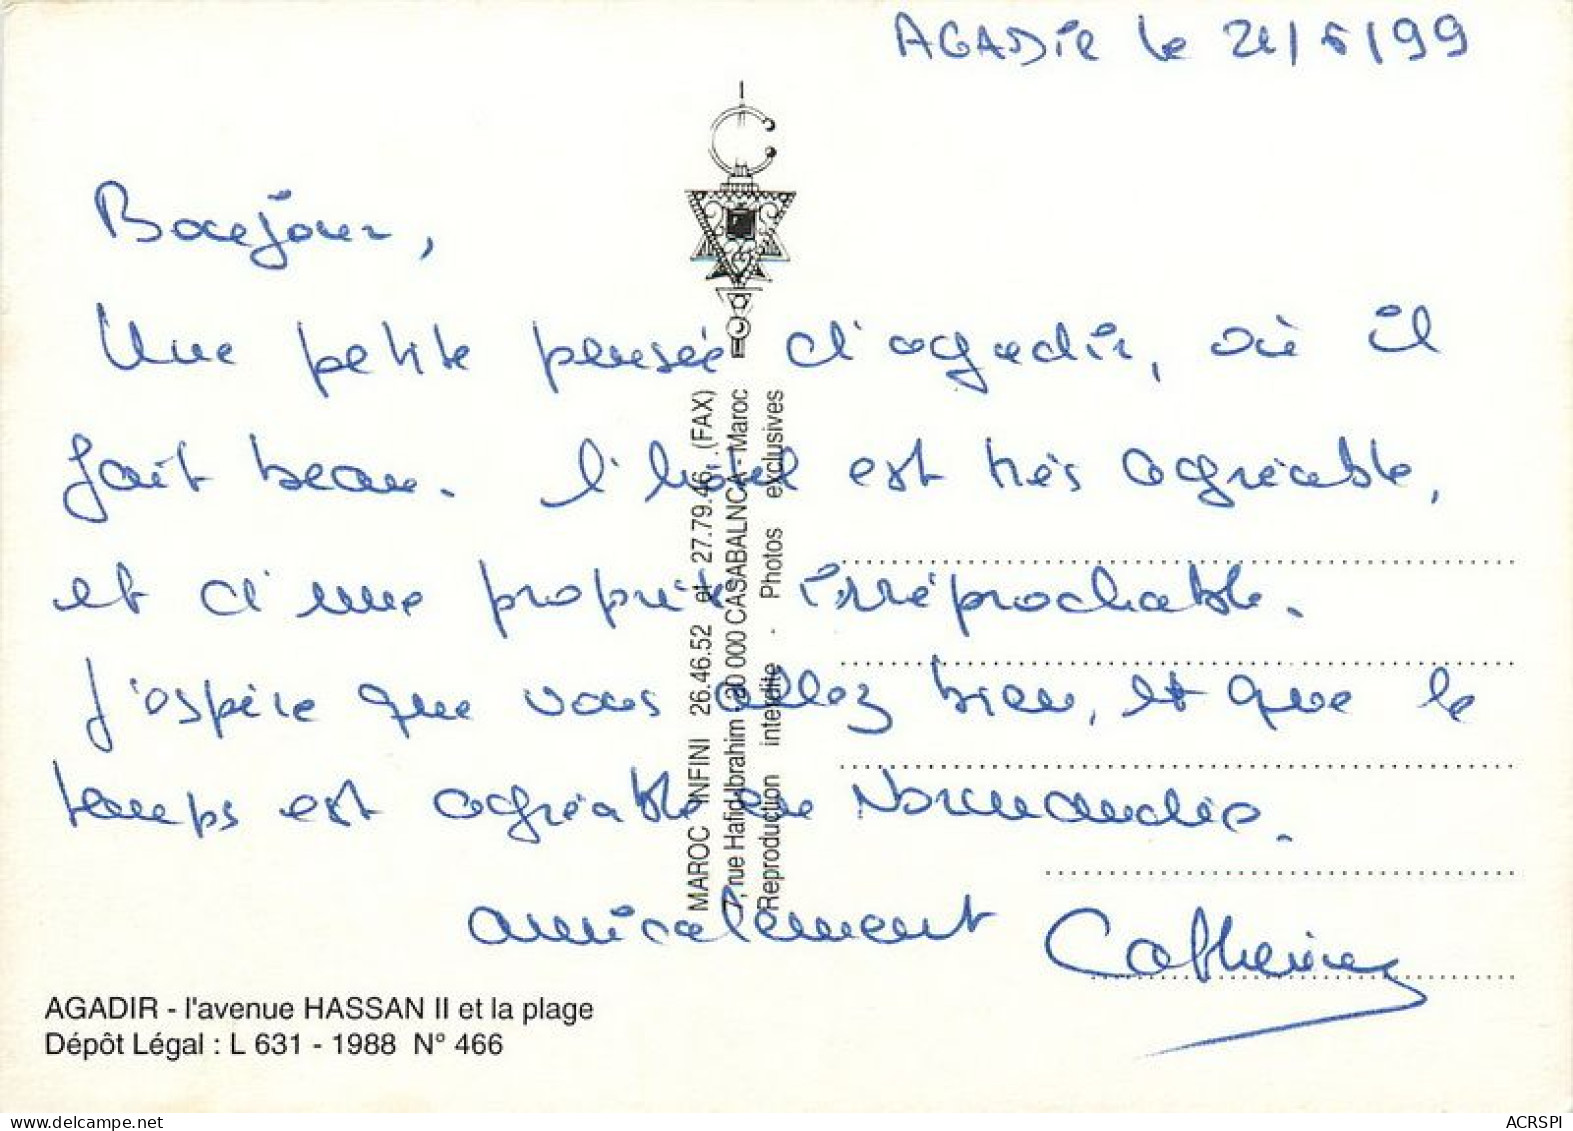 AGADIR le 21/5/99
Bonjour,
Une petite pensée d'agadir, où il
fait beau. l'hôtel est très agréable,
et d'une propreté irréprochable.
J'espère que vous allez bien, et que le
temps est agréable en Normandie.
amicalement Catherine
MAROC INFINI 26.46.52 et 27.79.46 (FAX)
7, rue Hafid Ibrahim - 20 000 CASABALNCA - Maroc
Reproduction interdite - Photos exclusives
AGADIR - l'avenue HASSAN II et la plage
Dépôt Légal : L 631 - 1988 N° 466
delcampe.net
ACRSPI